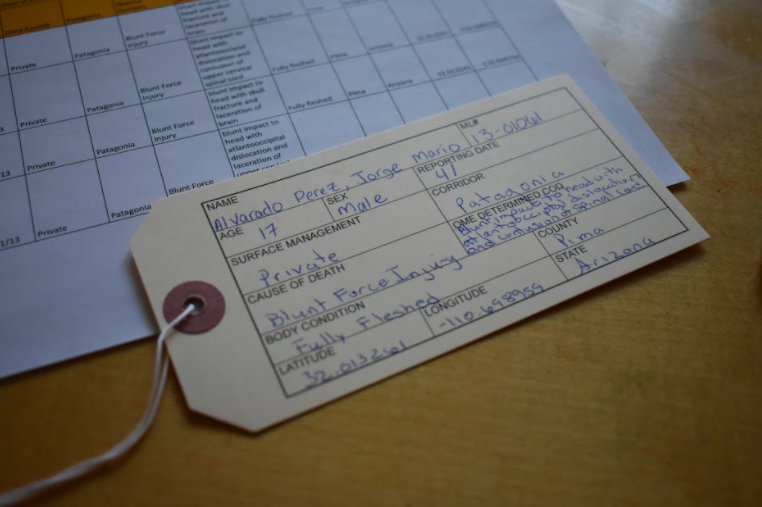 Private
Patagonia
Blunt Force
Injury
head with skull
fracture and
laceration of
brain
Fully fleshed
Pima
Private
Patagonia
Blunt Force
Injury
blunt impact to
head with
atlantooccipital
dislocation and
contusion of
upper cervical
spinal cord
Fully fleshed
Pima
Arizona
13
Private
Patagonia
Blunt Force
Injury
blunt impact to
head with skull
fracture and
laceration of
brain
Fully fleshed
Pima
Arizona
1/13
Private
Patagonia
Blunt Force
blunt impact to
head with
atlantooccipital
dislocation and
laceration of
NAME
Alvarado Perez, Jorge Mario
ML#
13-01061
AGE
17
SEX
Male
REPORTING DATE
4/
SURFACE MANAGEMENT
Private
CORRIDOR
Patagonia
CAUSE OF DEATH
Blunt Force Injury
OME DETERMINED COD
Blunt impact to head with
atlantooccipital dislocation
and contusion of spinal cord
BODY CONDITION
Fully Fleshed
COUNTY
Pima
LATITUDE
32.013261
LONGITUDE
-110.698959
STATE
Arizona